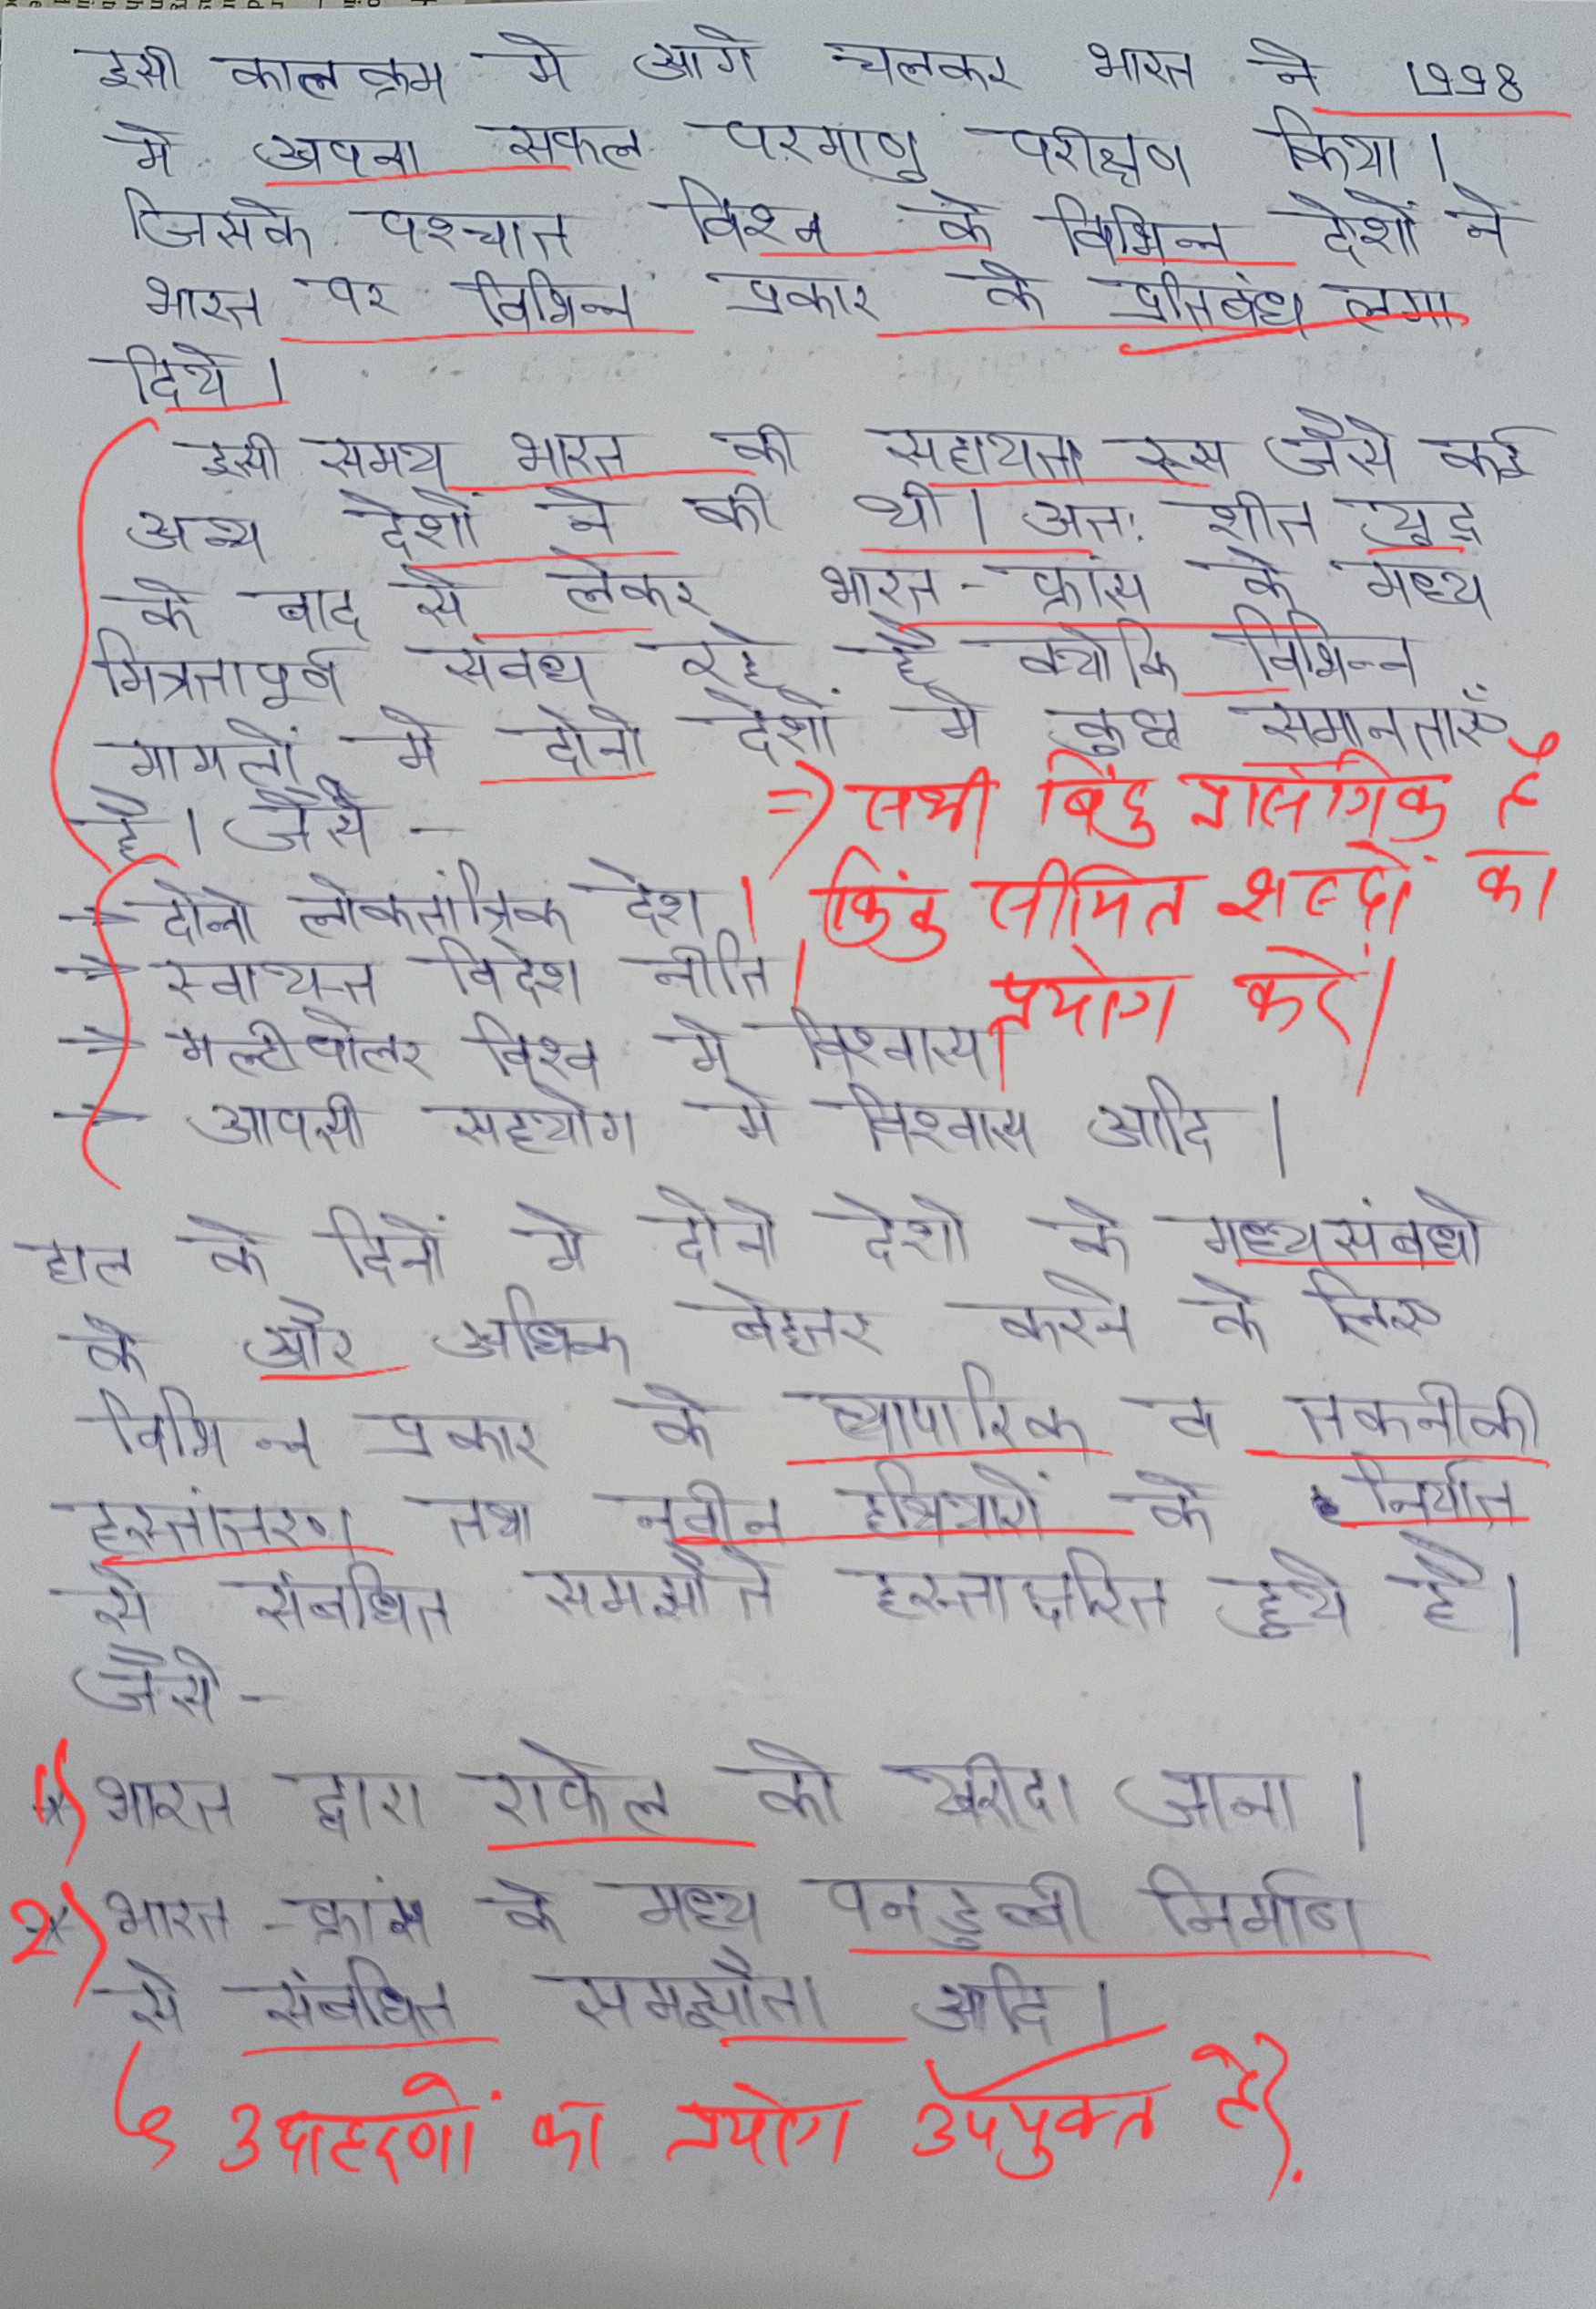 इसी कालक्रम मे आगे चलकर भारत ने 1998
मे अपना सफल परमाणु परीक्षण किया।
जिसके पश्चात विश्व के विभिन्न देशों ने
भारत पर विभिन्न प्रकार के प्रतिबंध लगा
दिये।
इसी समय भारत की सहायता रूस जैसे कई
अन्य देशों ने की थी। अतः शीत युद्ध
के बाद से लेकर भारत-फ्रांस के मध्य
मित्रतापूर्ण संबंध रहे है क्योकि विभिन्न
मामलों मे दोनो देशों मे कुछ समानताएँ
है। जैसे -
=> सभी बिंदु प्रासंगिक है
किंतु सीमित शब्दों का
प्रयोग करें।
→ दोनो लोकतांत्रिक देश।
→ स्वायत्त विदेश नीति।
→ मल्टीपोलर विश्व मे विश्वास।
→ आपसी सहयोग मे विश्वास आदि।
हाल के दिनों मे दोनो देशो के मध्य संबंधो
के और अधिक बेहतर करने के लिए
विभिन्न प्रकार के व्यापारिक व तकनीकी
हस्तांतरण तथा नवीन हथियारों के निर्यात
से संबंधित समझौते हस्ताक्षरित हुये है।
जैसे-
1) भारत द्वारा राफेल को खरीदा जाना।
2) भारत-फ्रांस के मध्य पनडुब्बी निर्माण
से संबंधित समझौता आदि।
उदाहरणों का प्रयोग उपयुक्त है।